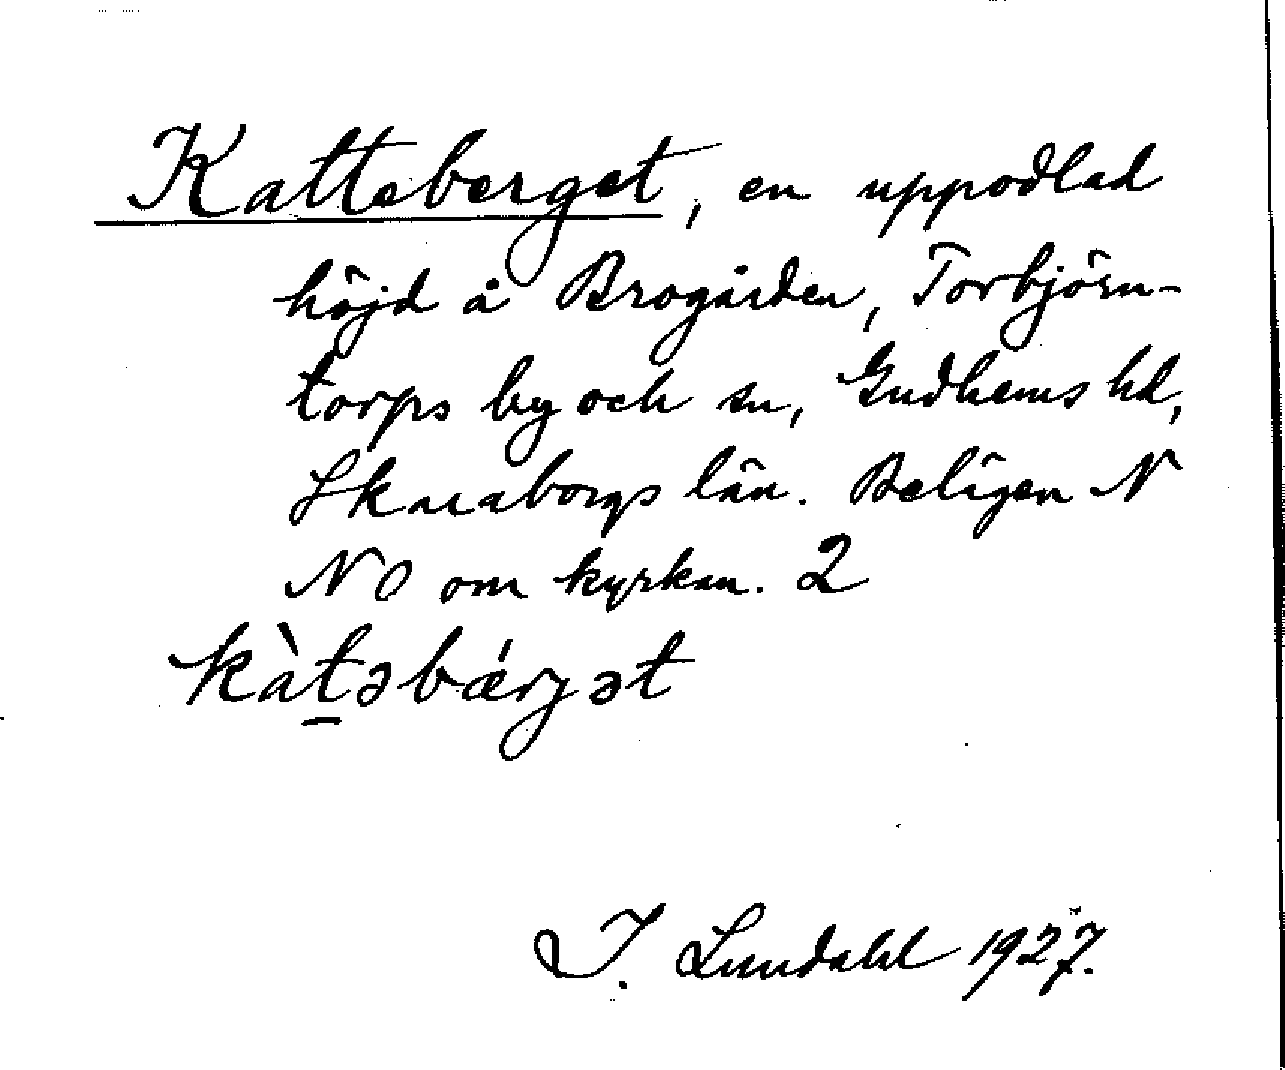 Katteberget, en uppodlad
höjd å Brogården, Torbjörn-
torps by och sn, Gudhems hd,
Skaraborgs län. Belägen N
NO om kyrkan. 2
kàt̲əbǽrjət
I. Lundahl 1927.